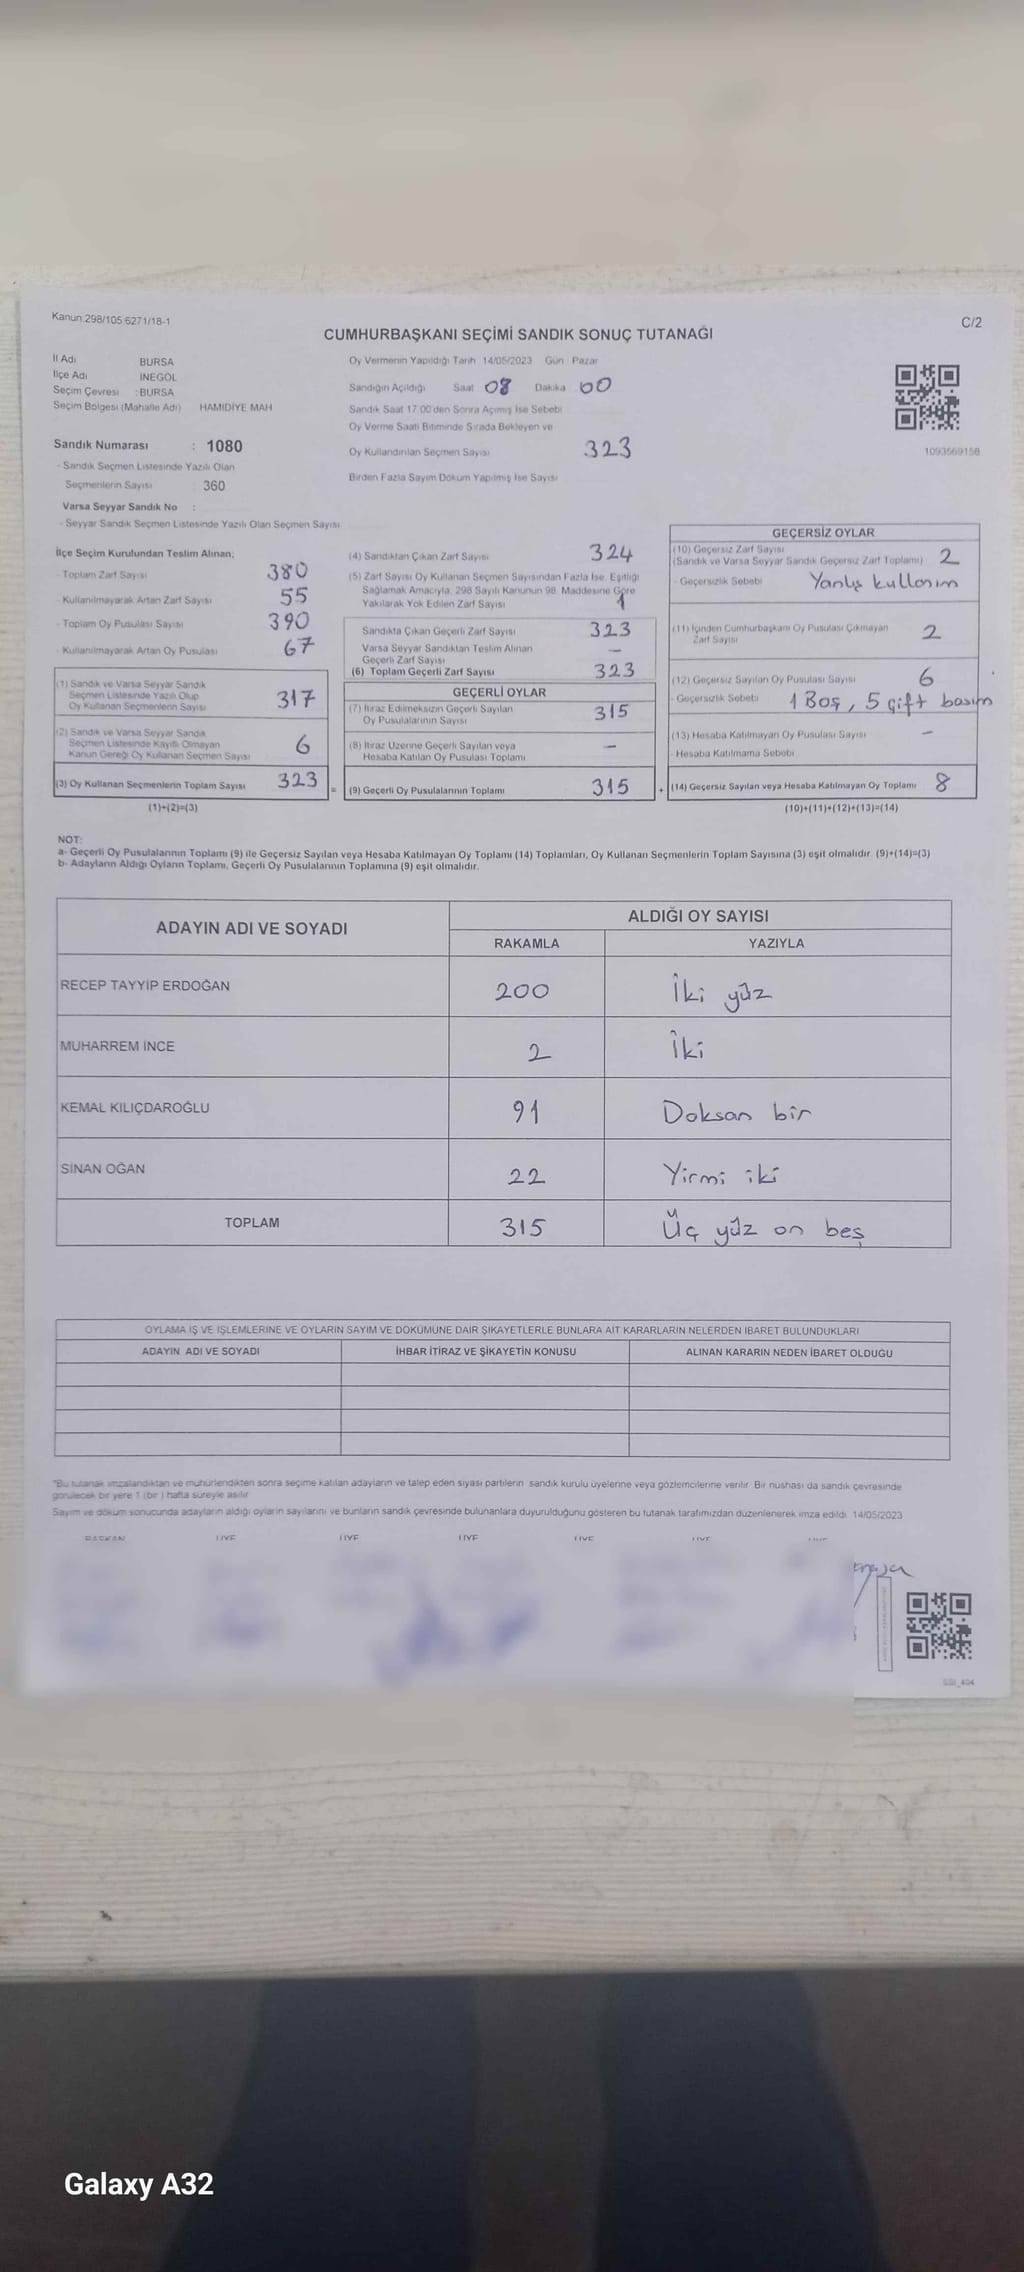 Kanun 298/105 6271/18-1
C/2
CUMHURBAŞKANI SEÇİMİ SANDIK SONUÇ TUTANAĞI
İl Adı BURSA
İlçe Adı İNEGÖL
Seçim Çevresi : BURSA
Seçim Bölgesi (Mahalle Adı) HAMİDİYE MAH
Oy Vermenin Yapıldığı Tarih 14/05/2023 Gün Pazar
Sandığın Açıldığı Saat 08 Dakika 00
Sandık Saat 17:00'den Sonra Açımış İse Sebebi
Oy Verme Saati Bitiminde Sırada Bekleyen ve
Oy Kullandırılan Seçmen Sayısı 323
Birden Fazla Sayım Döküm Yapılmış İse Sayısı
1093569158
Sandık Numarası : 1080
- Sandık Seçmen Listesinde Yazılı Olan
Seçmenlerin Sayısı 360
Varsa Seyyar Sandık No :
- Seyyar Sandık Seçmen Listesinde Yazılı Olan Seçmen Sayısı
İlçe Seçim Kurulundan Teslim Alınan;
- Toplam Zarf Sayısı 380
- Kullanılmayarak Artan Zarf Sayısı 55
- Toplam Oy Pusulası Sayısı 390
- Kullanılmayarak Artan Oy Pusulası 67
(1) Sandık ve Varsa Seyyar Sandık
Seçmen Listesinde Yazılı Olup
Oy Kullanan Seçmenlerin Sayısı 317
(2) Sandık ve Varsa Seyyar Sandık
Seçmen Listesinde Kayıtlı Olmayan
Kanun Gereği Oy Kullanan Seçmen Sayısı 6
(3) Oy Kullanan Seçmenlerin Toplam Sayısı 323
(1)+(2)=(3)
(4) Sandıktan Çıkan Zarf Sayısı 324
(5) Zarf Sayısı Oy Kullanan Seçmen Sayısından Fazla İse, Eşitliği
Sağlamak Amacıyla, 298 Sayılı Kanunun 98. Maddesine Göre
Yakılarak Yok Edilen Zarf Sayısı 1
Sandıkta Çıkan Geçerli Zarf Sayısı 323
Varsa Seyyar Sandıktan Teslim Alınan
Geçerli Zarf Sayısı –
(6) Toplam Geçerli Zarf Sayısı 323
GEÇERLİ OYLAR
(7) İtiraz Edilmeksizin Geçerli Sayılan
Oy Pusulalarının Sayısı 315
(8) İtiraz Üzerine Geçerli Sayılan veya
Hesaba Katılan Oy Pusulası Toplamı –
=
(9) Geçerli Oy Pusulalarının Toplamı 315
GEÇERSİZ OYLAR
(10) Geçersiz Zarf Sayısı
(Sandık ve Varsa Seyyar Sandık Geçersiz Zarf Toplamı) 2
- Geçersizlik Sebebi Yanlış kullanım
(11) İçinden Cumhurbaşkanı Oy Pusulası Çıkmayan
Zarf Sayısı 2
(12) Geçersiz Sayılan Oy Pusulası Sayısı 6
- Geçersizlik Sebebi 1 Boş, 5 çift basım
(13) Hesaba Katılmayan Oy Pusulası Sayısı –
- Hesaba Katılmama Sebebi
+
(14) Geçersiz Sayılan veya Hesaba Katılmayan Oy Toplamı 8
(10)+(11)+(12)+(13)=(14)
NOT:
a- Geçerli Oy Pusulalarının Toplamı (9) ile Geçersiz Sayılan veya Hesaba Katılmayan Oy Toplamı (14) Toplamları, Oy Kullanan Seçmenlerin Toplam Sayısına (3) eşit olmalıdır. (9)+(14)=(3)
b- Adayların Aldığı Oyların Toplamı, Geçerli Oy Pusulalarının Toplamına (9) eşit olmalıdır.
ADAYIN ADI VE SOYADI
ALDIĞI OY SAYISI
RAKAMLA YAZIYLA
RECEP TAYYİP ERDOĞAN 200 İki yüz
MUHARREM İNCE 2 İki
KEMAL KILIÇDAROĞLU 91 Doksan bir
SİNAN OĞAN 22 Yirmi iki
TOPLAM 315 Üç yüz on beş
OYLAMA İŞ VE İŞLEMLERİNE VE OYLARIN SAYIM VE DÖKÜMÜNE DAİR ŞİKAYETLERLE BUNLARA AİT KARARLARIN NELERDEN İBARET BULUNDUKLARI
ADAYIN ADI VE SOYADI İHBAR İTİRAZ VE ŞİKAYETİN KONUSU ALINAN KARARIN NEDEN İBARET OLDUĞU
*Bu tutanak imzalandıktan ve mühürlendikten sonra seçime katılan adayların ve talep eden siyasi partilerin sandık kurulu üyelerine veya gözlemcilerine verilir. Bir nüshası da sandık çevresinde
görülecek bir yere 1 (bir) hafta süreyle asılır.
Sayım ve döküm sonucunda adayların aldığı oyların sayılarını ve bunların sandık çevresinde bulunanlara duyurulduğunu gösteren bu tutanak tarafımızdan düzenlenerek imza edildi. 14/05/2023
BAŞKAN ÜYE ÜYE ÜYE ÜYE ÜYE
Galaxy A32